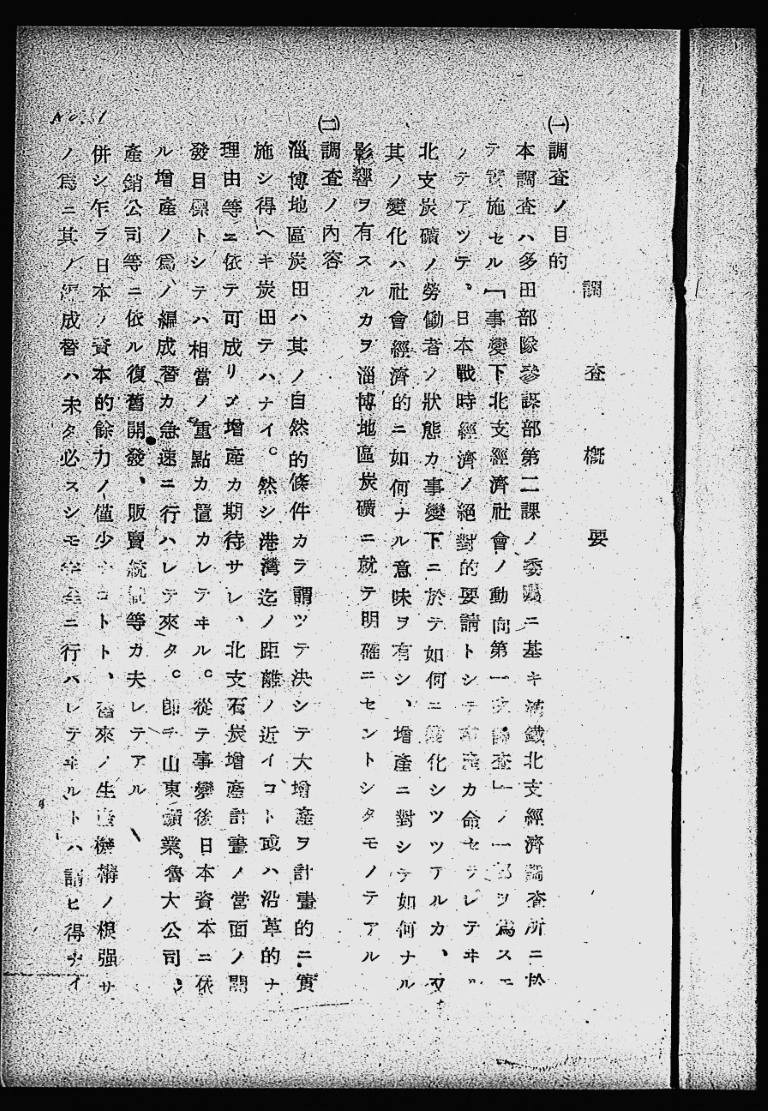 調査概要
㈠調査ノ目的
本調査ハ多田部隊參謀部第二課ノ委囑ニ基キ滿鐵北支經濟調査所ニ於
テ實施セル「事變下北支經濟社會ノ動向第一次調査」ノ一部ヲ爲スモ
ノテアツテ、日本戰時經濟ノ絕對的要請トシテ增產カ命セラレテヰル
北支炭礦ノ勞働者ノ狀態カ事變下ニ於テ如何ニ變化シツツアルカ、又
其ノ變化ハ社會經濟的ニ如何ナル意味ヲ有シ、增產ニ對シテ如何ナル
影響ヲ有スルカヲ淄博地區炭礦ニ就テ明確ニセントシタモノテアル
㈡調査ノ內容
淄博地區炭田ハ其ノ自然的條件カラ謂ツテ決シテ大增產ヲ計畫的ニ實
施シ得ヘキ炭田テハナイ。然シ港灣迄ノ距離ノ近イコト或ハ沿革的ナ
理由等ニ依テ可成リノ增產カ期待サレ、北支石炭增產計畫ノ當面ノ開
發目標トシテハ相當ノ重點カ置カレテヰル。從テ事變後日本資本ニ依
ル增產ノ爲ノ編成替カ急速ニ行ハレテ來タ。卽チ山東鑛業、魯大公司、
產銷公司等ニ依ル復舊開發、販賣統制等カ夫レテアル
併シ乍ラ日本ノ資本的餘力ノ僅少ナコトト、舊來ノ生產機構ノ根强サ
ノ爲ニ其ノ編成替ハ未タ必スシモ完全ニ行ハレテヰルトハ謂ヒ得ナイ
No. 1